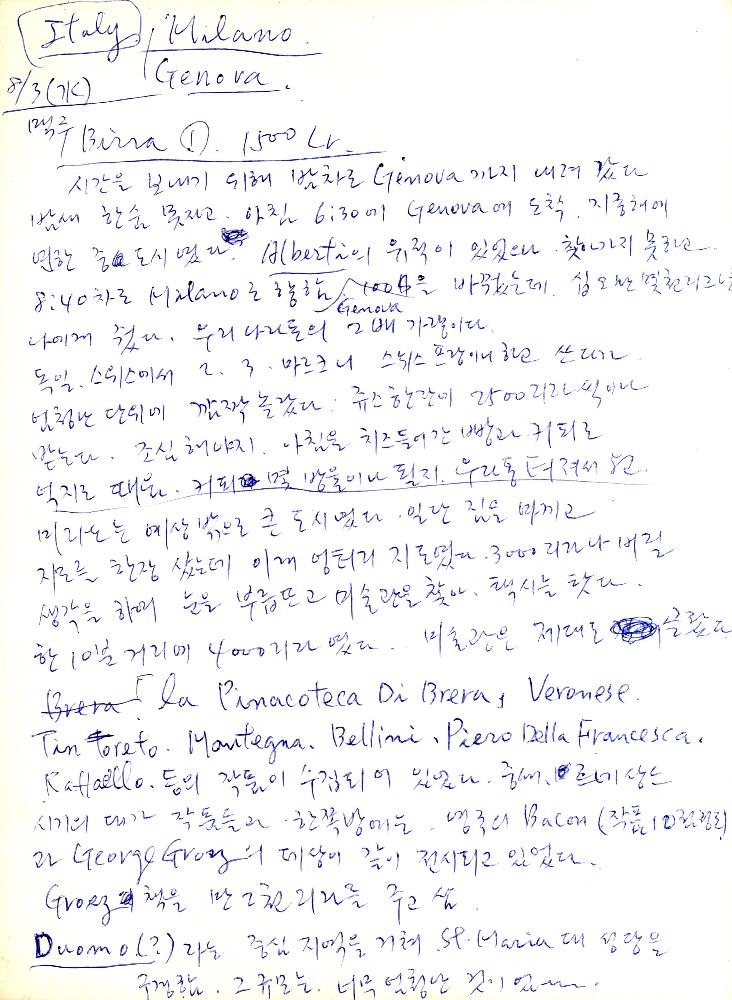 Italy / Milano.
Genova.
8/3(水)
맥주 Birra ①. 1500 Lr.
시간을 보내기 위해 밤차로 Genova까지 내려 갔다
밤새 한숨 못자고. 아침 6:30에 Genova에 도착. 지중해에
면한 중 도시였다. Alberti의 유적이 있었으나 찾아가지 못하고
8:40차로 Milano로 향함 Genova 을 바꿨는데. 십 만 몇천리라
나에게 줬다. 우리나라돈의 2배 가량이다.
독일. 스위스에서 2. 3. 마르크니 스위스 프랑이니 하고 쓰다가
엄청난 단위에 깜짝 놀랐다. 쥬스한잔에 2500리라씩이나
받는다. 조심해야지. 아침을 치즈들어간 빵과 커피로
억지로 때움. 커피 몇 방울이나 될지. 우라통 터져서
미라노는 예상 밖으로 큰 도시였다. 일단 짐을 맡기고
지도를 한장 샀는데 이게 엉터리 지도였다. 3000리라나 버릴
생각을 하며 눈을 부릅뜨고 미술관을 찾아. 택시를 탔다.
한 10분 거리에 4000리라였다. 미술관은 제대로 골랐다
Brera 「la Pinacoteca Di Brera, Veronese.
Tintoreto. Mantegna. Bellini. Piero Della Francesca.
Raffaello. 등의 작품이 수집되어 있었다. 중세. 르네상스
시기의 대가 작품들과 한쪽방에는. 영국의 Bacon (작품10점정도)
과 George Grosz의 데상이 같이 전시되고 있었다.
Grosz 책을 만2천리라를 주고 삼
Duomo(?)라는 중심 지역을 거쳐 St. Maria 대성당을
구경함. 그 규모는. 너무 엄청난 것이었